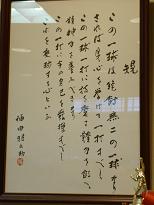 この一球は絶対無二の一球なり
されば身心を挙げて一打すべし
この一球一打に技を磨き体力を鍛へ
精神力を養ふべきなり
この一打に今の自己を発揮すべし
これを庭球する心といふ
福田雅之助